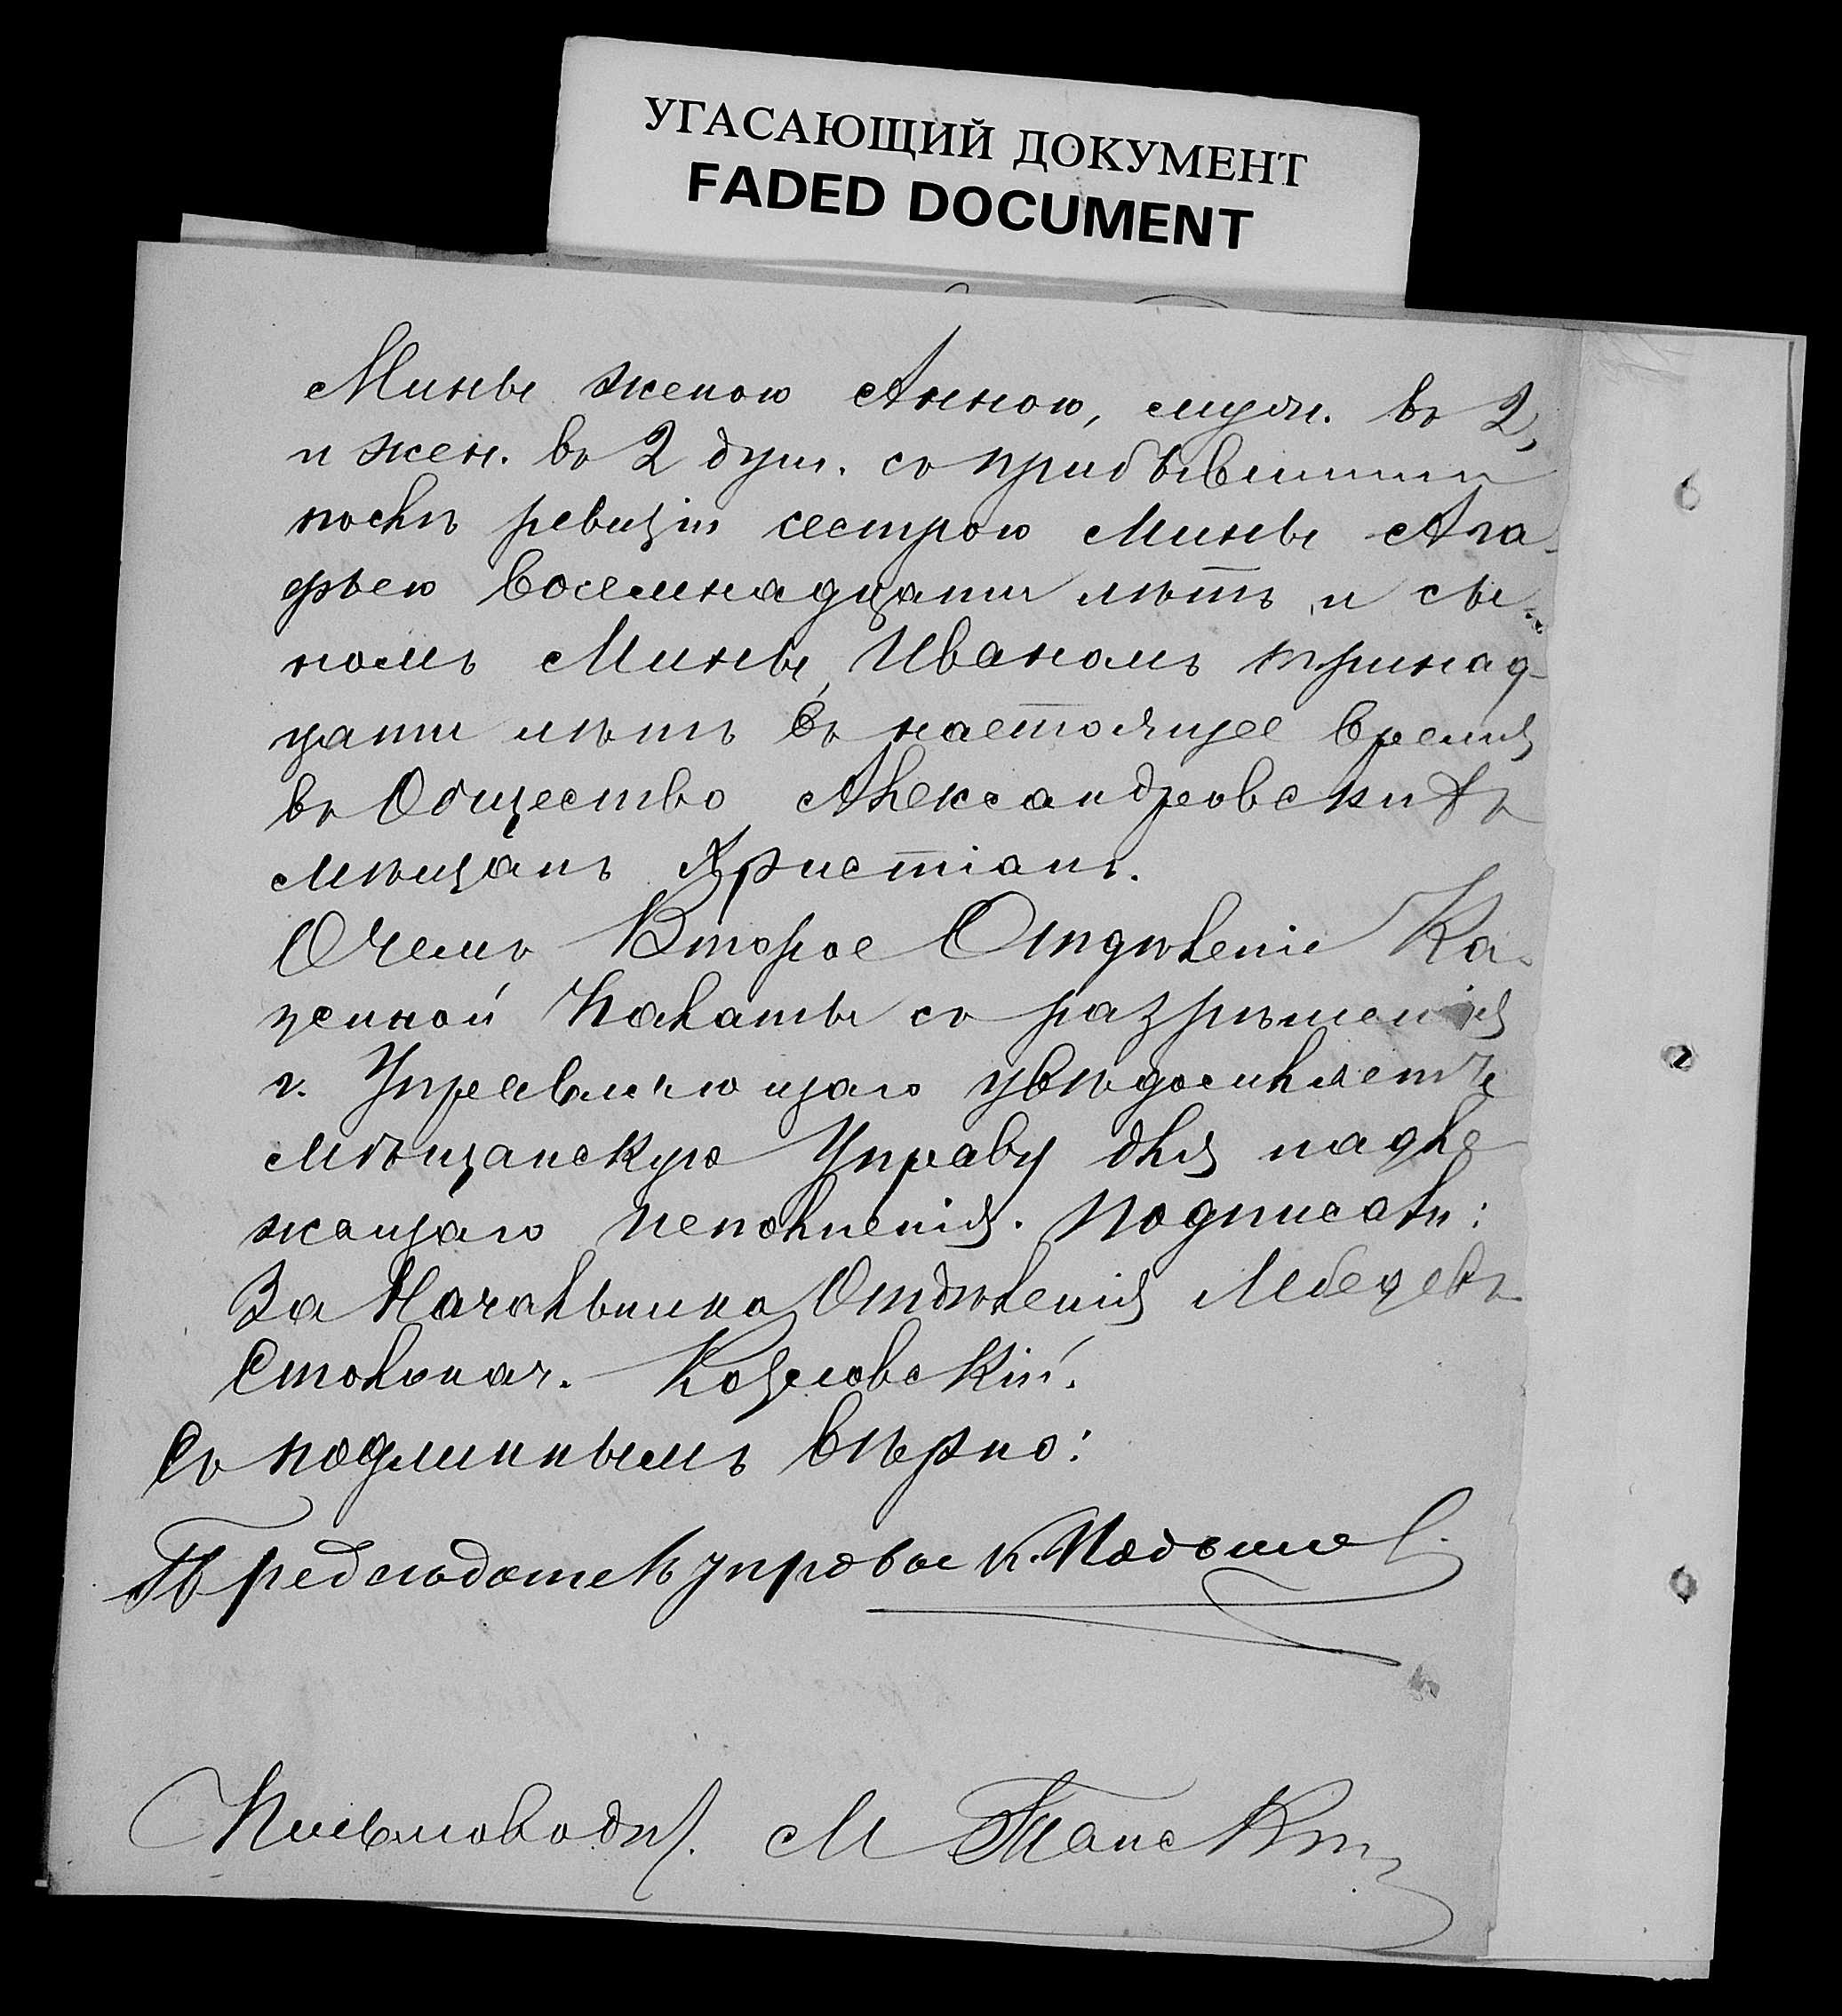 УГАСАЮЩИЙ ДОКУМЕНТ
FADED DOCUMENT
Мины женою Анною, муж. въ 2,
и жен. въ 2 душ. съ прибывшими
послѣ ревизіи сестрою Мины Ага-
фьею восемнадцати лѣтъ и сы-
номъ Мины Иваномъ тринад-
цати лѣтъ въ настоящее время
въ Общество Александровскихъ
мѣщанъ Христіанъ.
О чемъ Второе Отдѣленіе Ка-
зенной Палаты съ разрѣшенія
г. Управляющаго увѣдомляетъ
Мѣщанскую Управу для надле
жащаго исполненія. Подписали:
За Начальника Отдѣленія Лебедевъ
Столонач. Козловскій.
Съ подлиннымъ вѣрно:
Предсѣдатель управы К.
Письмоводит. М